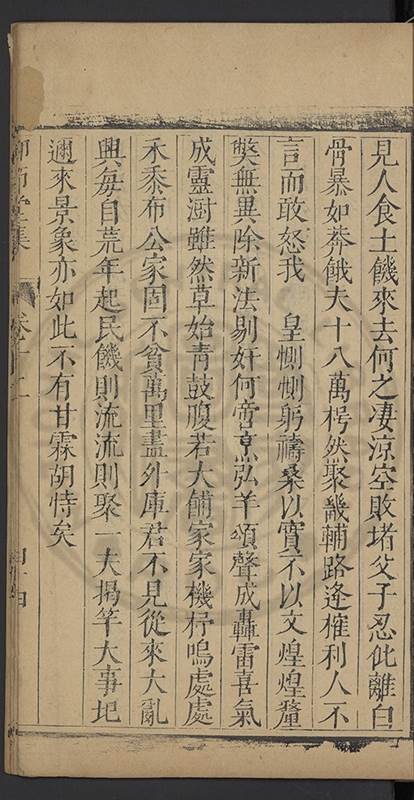 見人食土饑來去何之凄涼空敗堵父子忍仳離白
骨暴如莽餓夫十八萬枵然聚畿輔路逢権利人不
言而敢怒我　皇惻惻躬禱桑以實不以文煌煌釐
獘無異除新法剔奸何啻烹弘羊頌聲成轟雷喜氣
成靈澍雖然草始青鼓腹若大餔家家機杼鳴處處
禾黍布公家固不貧萬里盡外庫君不見從來大亂
興每自荒年起民饑則流流則聚一夫揭竿大事圮
邇來景象亦如此不有甘霖胡恃矣
卷十二